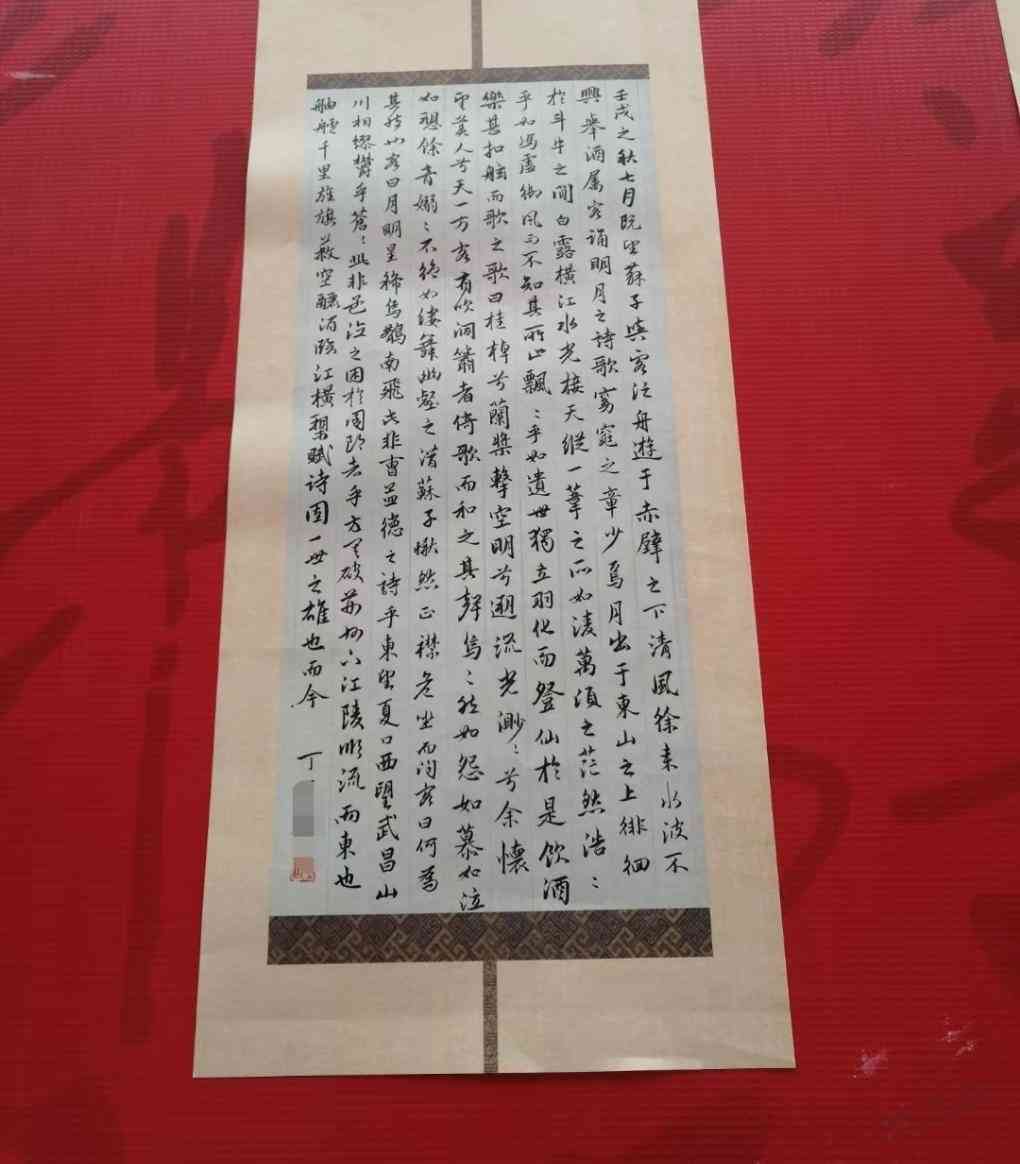 壬戌之秋七月既望蘇子與客泛舟遊于赤壁之下清風徐来水波不
興舉酒属客誦明月之詩歌窈窕之章少焉月出于東山之上徘徊
於斗牛之間白露橫江水光接天縱一葦之所如凌萬頃之茫然浩〻
乎如馮虛御風而不知其所止飄〻乎如遺世獨立羽化而登仙於是飲酒
樂甚扣舷而歌之歌曰桂棹兮蘭槳擊空明兮遡流光渺〻兮余懷
望美人兮天一方客有吹洞簫者倚歌而和之其聲烏〻然如怨如慕如泣
如愬餘音嫋〻不絕如縷舞幽壑之潛蘇子愀然正襟危坐而問客曰何為
其然也客曰月明星稀烏鵲南飛此非曹孟德之詩乎東望夏口西望武昌山
川相繆欝乎蒼〻此非孟德之困於周郎者乎方其破荊州下江陵順流而東也
舳艫千里旌旗蔽空釃酒臨江橫槊賦诗固一世之雄也而今
丁